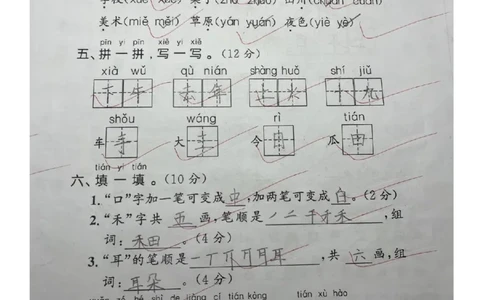 美术(miě měi) 草原(yán yuán) 夜色(yiè yè)
pīn yi pīn xiě yi xiě
五、拼一拼,写一写。(12分)
xià wǔ qù nián shàng huǒ shí jiǔ
下午 去年 上火 十九
shǒu wáng rì tián
车手 大王 今日 瓜田
tián yi tián
六、填一填。(10分)
1.“口”字加一笔可变成中,加两笔可变成白。(2分)
2.“禾”字共五画,笔顺是一二千才禾,组
词:禾田。(4分)
3.“耳”的笔顺是一丁丌耳,共六画,组
词:耳朵。(4分)